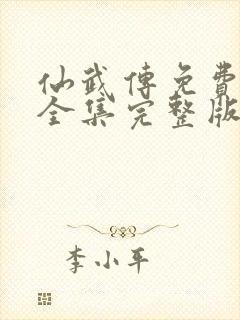 仙武傳免費
全集完整版
李小平